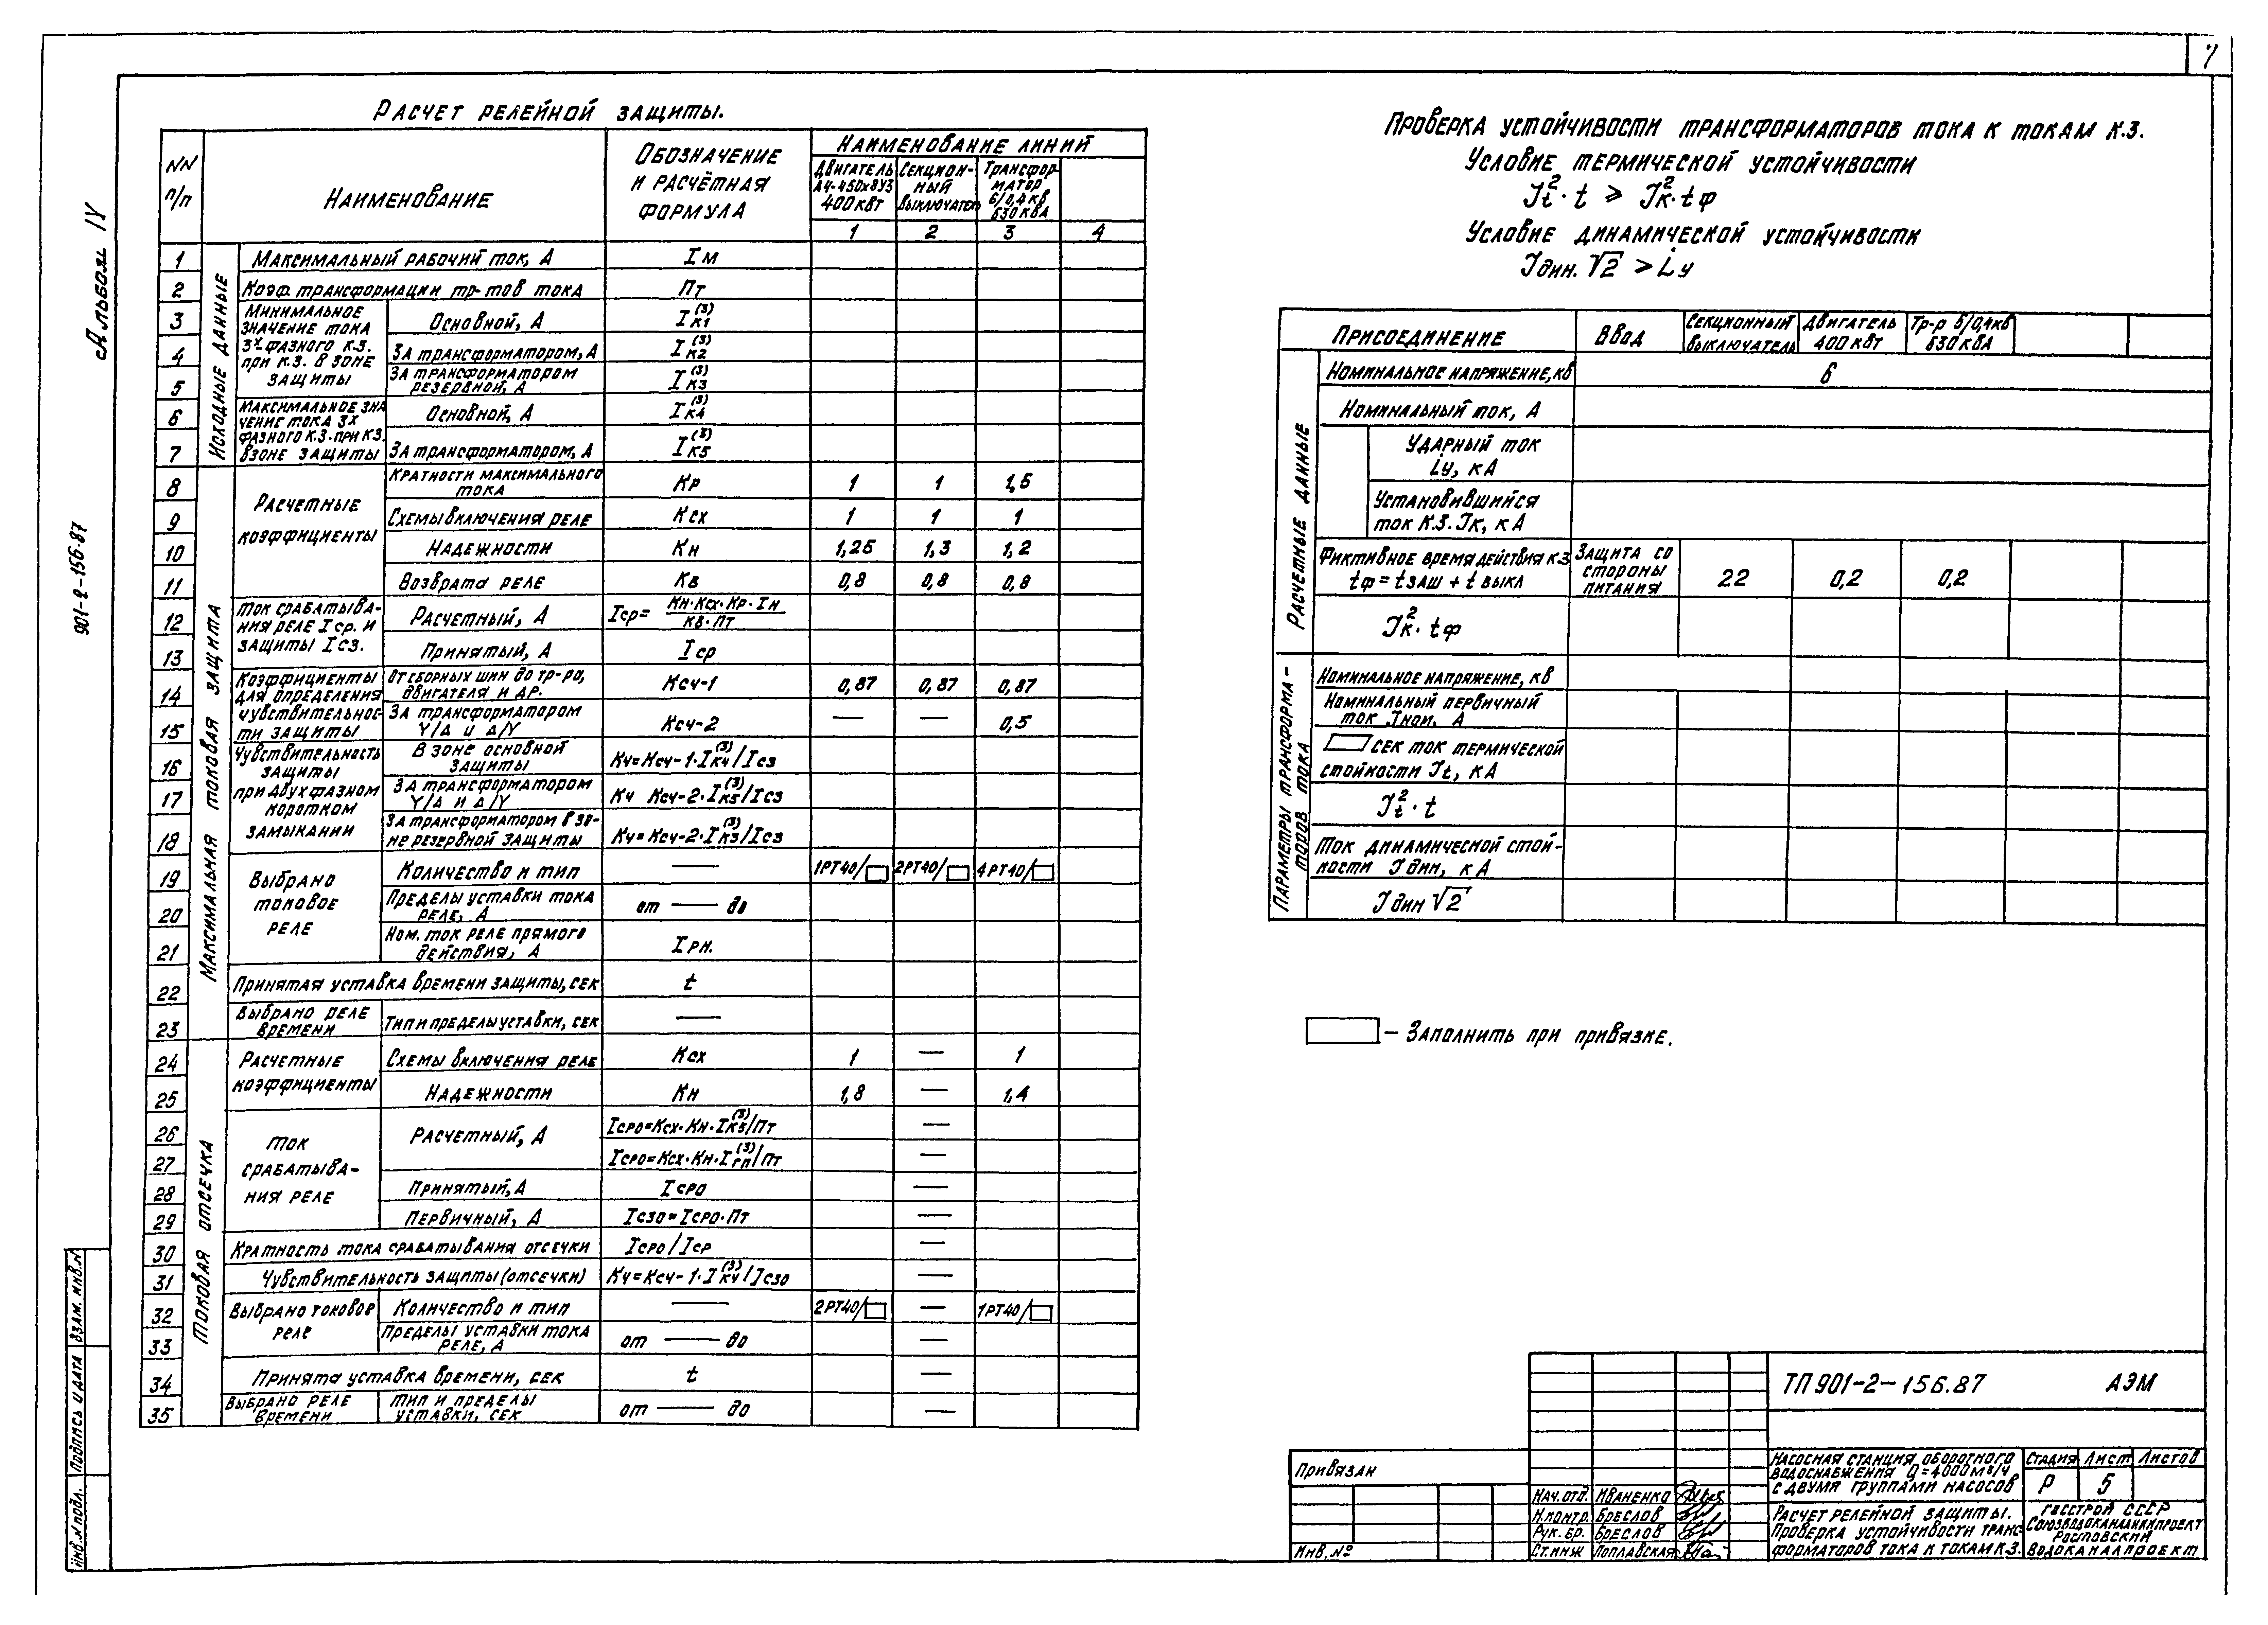 7
Альбом IV
901-2-156.87
Расчет релейной защиты.
NN п/п
Наименование
Обозначение и расчётная формула
Наименование линий
Двигатель А4-450х8У3 400 кВт
Секционный выключатель
Трансформатор 6/0,4 кв 630 кВА
1 2 3 4
Исходные данные
1 Максимальный рабочий ток, А Iм
2 Коэф. трансформации тр-тов тока Пт
Минимальное значение тока 3х фазного к.з. при к.з. в зоне защиты
3 Основной, А I(3)к1
4 За трансформатором, А I(3)к2
5 За трансформатором резервной, А I(3)к3
Максимальное значение тока 3х фазного к.з. при к.з. в зоне защиты
6 Основной, А I(3)к4
7 За трансформатором, А I(3)к5
Максимальная токовая защита
Расчетные коэффициенты
8 Кратности максимального тока Кр 1 1 1,5
9 Схемы включения реле Ксх 1 1 1
10 Надежности Кн 1,25 1,3 1,2
11 Возврата реле Кв 0,8 0,8 0,8
Ток срабатывания реле Iср. и защиты Iсз.
12 Расчетный, А Iср= Кн·Ксх·Кр·Iн / Кв·Пт
13 Принятый, А Iср
Коэффициенты для определения чувствительности защиты
14 От сборных шин до тр-ра, двигателя и др. Ксч-1 0,87 0,87 0,87
15 За трансформатором Y/Δ и Δ/Y Ксч-2 — — 0,5
Чувствительность защиты при двухфазном коротком замыкании
16 В зоне основной защиты Кч=Ксч-1·I(3)к4/Iсз
17 За трансформатором Y/Δ и Δ/Y Кч Ксч-2·I(3)к5/Iсз
18 За трансформатором в зоне резервной защиты Кч=Ксч-2·I(3)к3/Iсз
Выбрано токовое реле
19 Количество и тип — 1РТ40/ 2РТ40/ 4РТ40/
20 Пределы уставки тока реле, А от — до
21 Ном. ток реле прямого действия, А Iрн.
22 Принятая уставка времени защиты, сек t
23 Выбрано реле времени Тип и пределы уставки, сек —
Токовая отсечка
Расчетные коэффициенты
24 Схемы включения реле Ксх 1 — 1
25 Надежности Кн 1,8 — 1,4
Ток срабатывания реле
26 Расчетный, А Iсро=Ксх·Кн·I(3)к5/Пт —
27 Iсро=Ксх·Кн·I(3)гп/Пт —
28 Принятый, А Iсро —
29 Первичный, А Iсзо=Iсро·Пт —
30 Кратность тока срабатывания отсечки Iсро/Iср —
31 Чувствительность защиты (отсечки) Кч=Ксч-1·I(3)к4/Iсзо —
Выбрано токовое реле
32 Количество и тип — 2РТ40/ — 1РТ40/
33 Пределы уставки тока реле, А от — до —
34 Принята уставка времени, сек t —
35 Выбрано реле времени Тип и пределы уставки, сек от — до —
Проверка устойчивости трансформаторов тока к токам к.з.
Условие термической устойчивости
Jt²·t ⩾ Jк²·tф
Условие динамической устойчивости
Jдин.√2 > iу
Присоединение Ввод Секционный выключатель Двигатель 400 кВт Тр-р 6/0,4кв 630 кВА
Расчетные данные
Номинальное напряжение, кв 6
Номинальный ток, А
Ударный ток iу, кА
Установившийся ток к.з. Jк, кА
Фиктивное время действия к.з tф = tзащ + tвыкл Защита со стороны питания 22 0,2 0,2
Jк²·tф
Параметры трансформаторов тока
Номинальное напряжение, кв
Номинальный первичный ток Jном, А
сек ток термической стойкости Jt, кА
Jt²·t
Ток динамической стойкости Jдин, кА
Jдин √2
— Заполнить при привязке.
ТП 901-2-156.87 АЭМ
Насосная станция оборотного водоснабжения Q=4000м³/ч с двумя группами насосов
Стадия Лист Листов
Р 5
Расчет релейной защиты. Проверка устойчивости трансформаторов тока к токам к.з.
Госстрой СССР
Союзводоканалниипроект
Ростовский
Водоканалпроект
Привязан
Инв. №
Нач. отд. Иваненко
Н.контр. Бреслов
Рук. бр. Бреслов
Ст. инж Поплавская
Взам. инв. N
Подпись и дата
Инв. N подл.